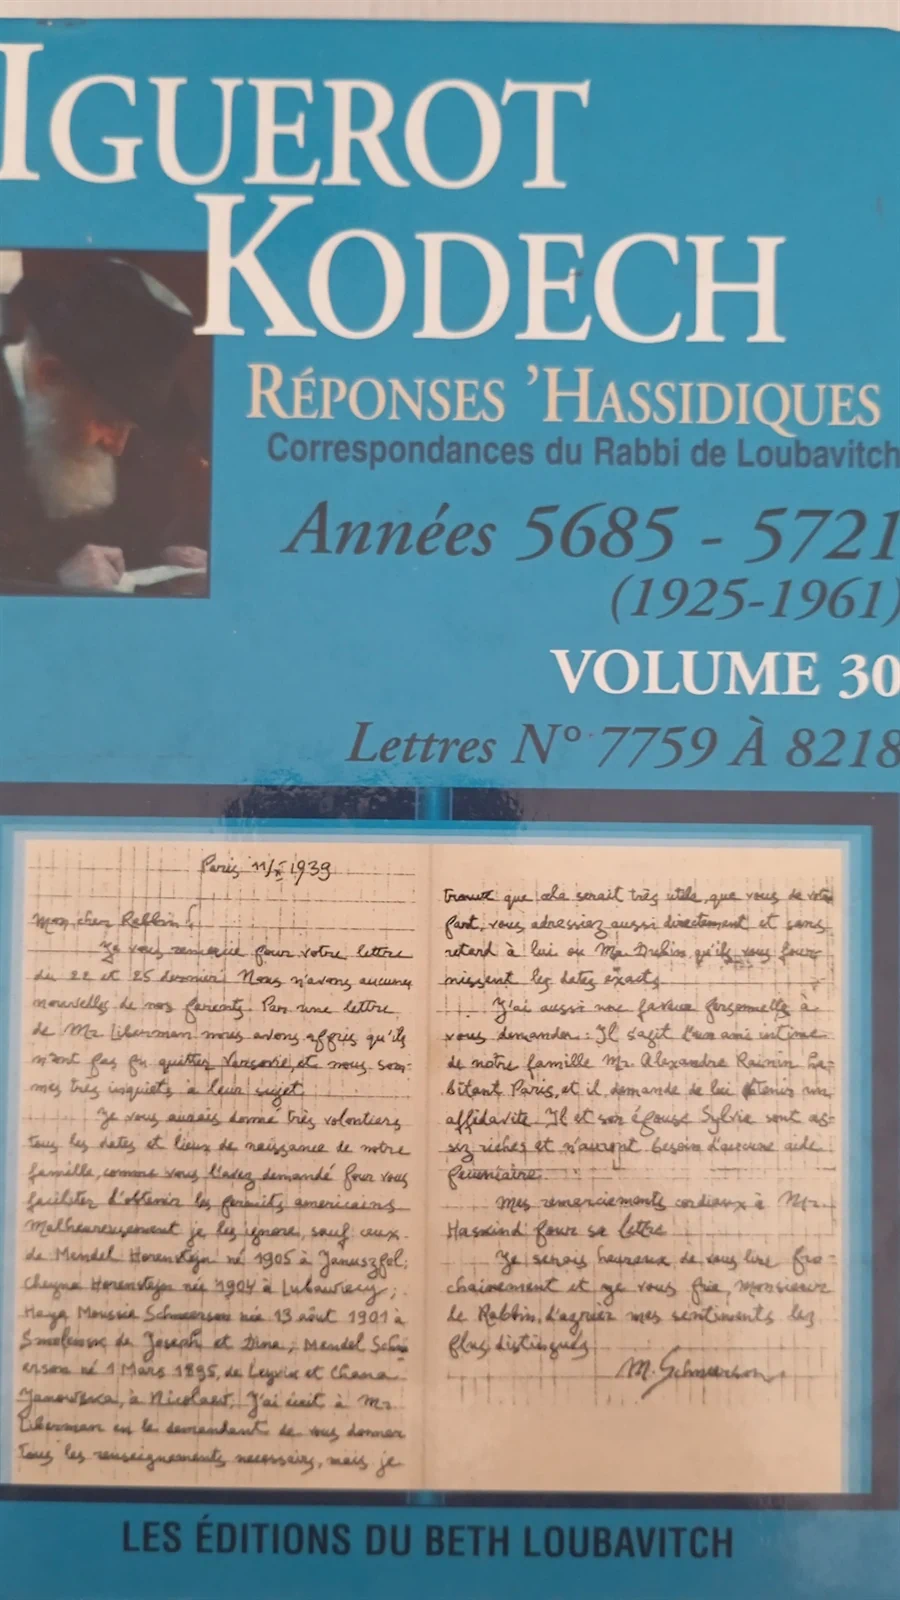 IGUEROT
KODECH
RÉPONSES 'HASSIDIQUES
Correspondances du Rabbi de Loubavitch
Années 5685 - 5721
(1925-1961)
VOLUME 30
Lettres N° 7759 À 8218
Paris 11/X 1939
Mon cher Rabbin!
Je vous remercie pour votre lettre
du 22 et 25 dernier. Nous n'avons aucunes
nouvelles de nos parents. Par une lettre
de Mr Liberman nous avons appris qu'ils
n'ont pas pu quitter Varsovie, et nous som-
mes très inquiets à leur sujet.
Je vous aurais donné très volontiers
tous les dates et lieux de naissance de notre
famille, comme vous l'avez demandé pour vous
faciliter d'obtenir les permits americains
Malheureusement je les ignore, sauf ceux
de Mendel Horenstejn né 1905 à
Chejna Horenstejn née 1904 à
Haya Moussia Schneerson née 13 août 1901 à
de Joseph et Dina; Mendel
né 1 Mars 1895, de et Chana
à Nicolaev. J'ai écrit à Mr
Liberman en le demandant de vous donner
tous les renseignements necessairs, mais je
trouve que cela serait très utile, que vous de votre
part, vous adressiez aussi directement et sans
retard à lui ou Mr Dubin, qu'ils vous four-
nissent les dates exacts.
J'ai aussi une faveur personnelle à
vous demander: Il s'agit d'un ami intime
de notre famille Mr. Alexandre Rainin ha-
bitant Paris, et il demande de lui obtenir un
affidavite. Il et son épouse Sylvie sont as-
sez riches et n'auront besoin d'aucune aide
pécuniaire.
Mes remerciements cordiaux à Mr.
Haskind pour sa lettre
Je serais heureux de vous lire pro-
chainement et je vous prie, Monsieur
le Rabbin, d'agréer mes sentiments les
plus distingués
M. Schneerson
LES ÉDITIONS DU BETH LOUBAVITCH